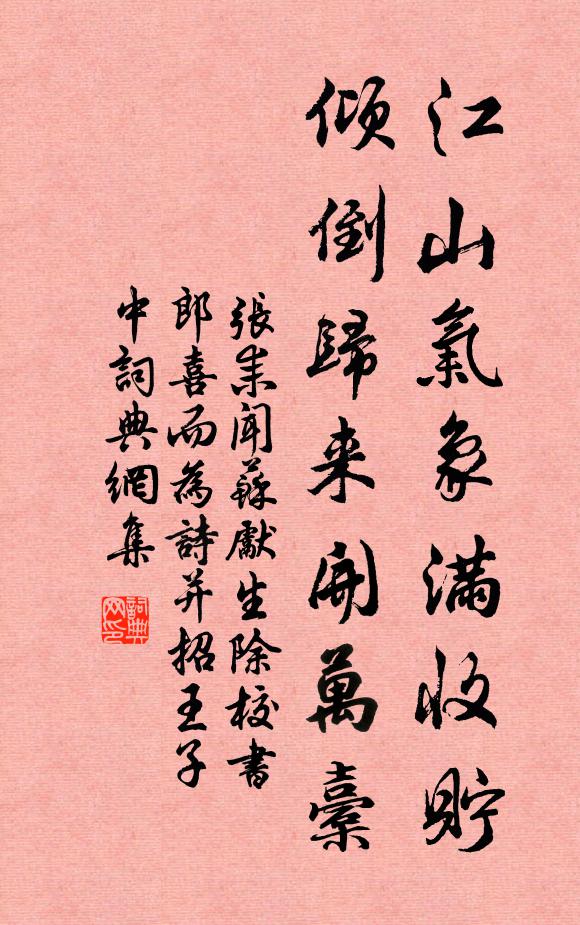 江山氣象滿收貯
傾倒歸来開萬橐
張耒聞蘇獻生除校書
郎喜而為詩并招王子
中詞典網集
詞典网印